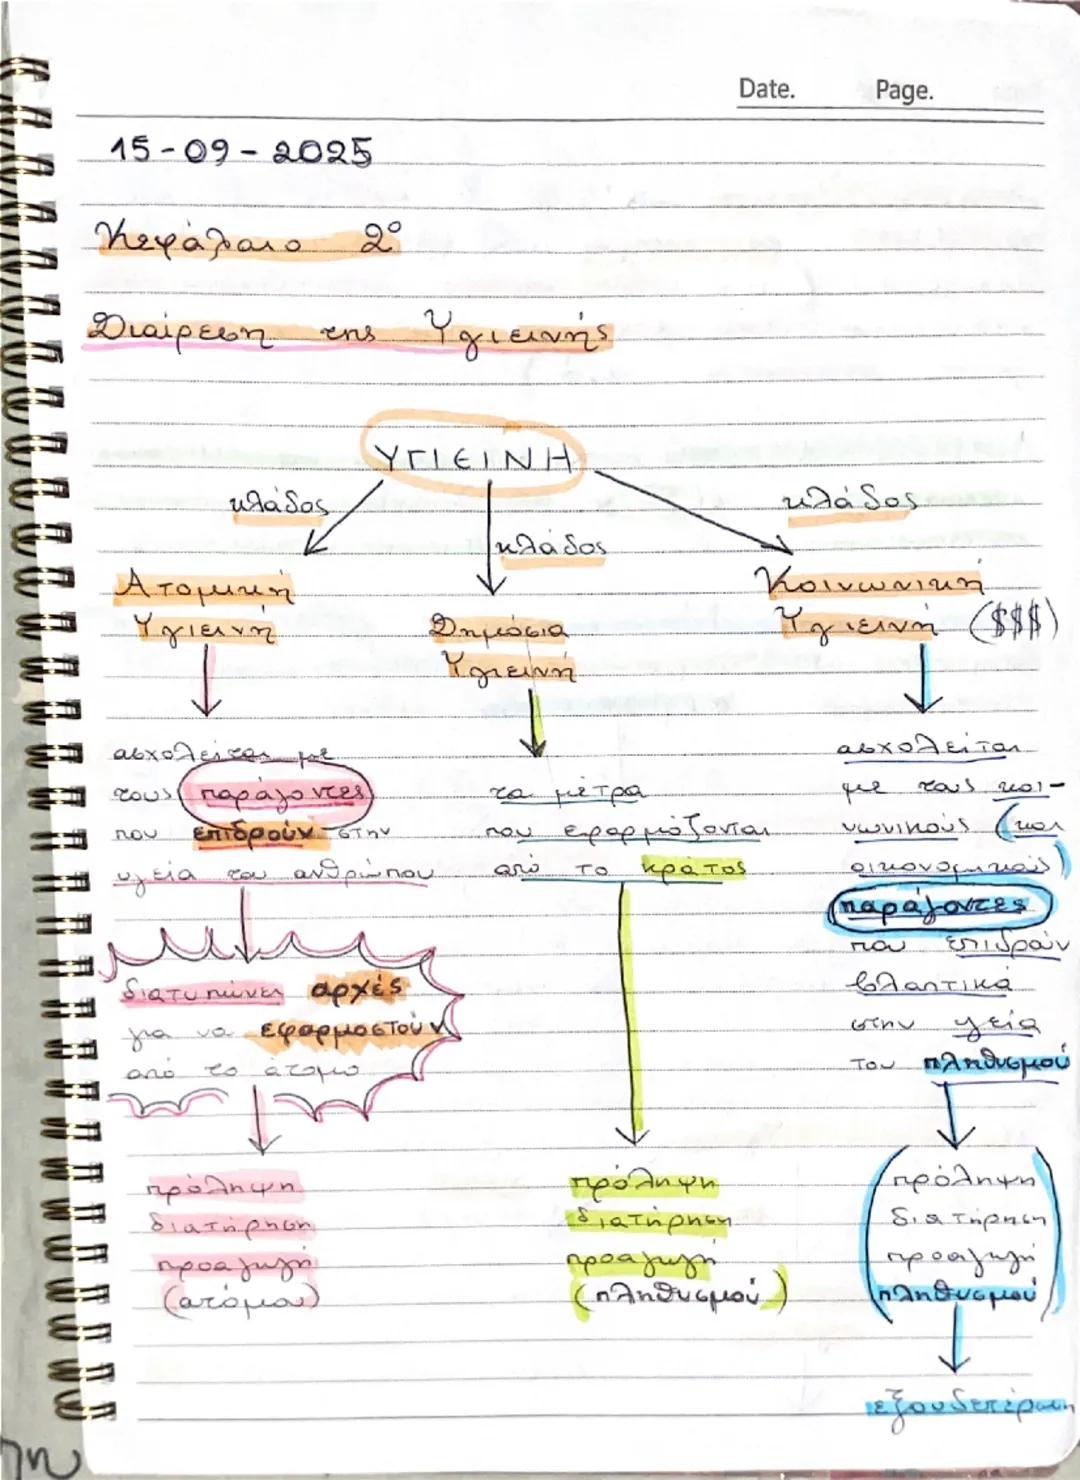 Date. Page.
15-09-2025
Κεφάλαιο 2º
Διαίρεση της Υγιεινής
ΥΓΙΕΙΝΗ
κλάδος
κλάδος
κλάδος
Ατομική
Υγιεινή
Δημόσια
Υγιεινή
Κοινωνική
Υγιεινή ($$$)
ασχολείται με
τους παράγοντες
που επιδρούν στην
υγεία του ανθρώπου
διατυπώνει αρχές
για να εφαρμοστούν
από το άτομο
πρόληψη
διατήρηση
προαγωγή
(ατόμου)
τα μέτρα
που εφαρμόζονται
από το κράτος
πρόληψη
διατήρηση
προαγωγή
(πληθυσμού)
ασχολείται
με τους κοι-
νωνικούς (και
οικονομικούς)
παράγοντες
που επιδρούν
βλαπτικά
στην υγεία
του πληθυσμού
(πρόληψη
διατήρηση
προαγωγή
πληθυσμού)
εξουδετέρωση